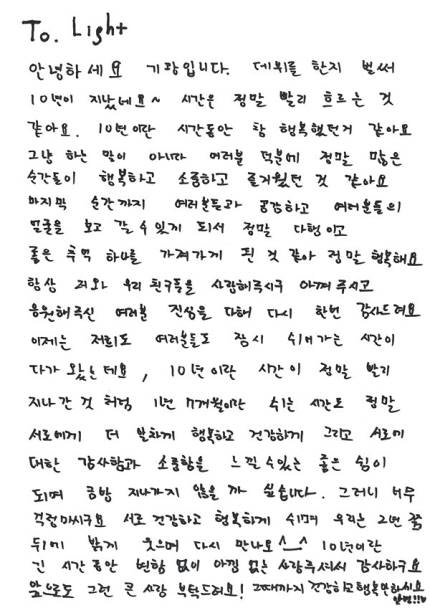 To. Light
안녕하세요 기광입니다. 데뷔를 한지 벌써
10년이 지났네요~ 시간은 정말 빨리 흐르는 것
같아요. 10년이란 시간동안 참 행복했던거 같아요
그냥 하는 말이 아니라 여러분 덕분에 정말 많은
순간들이 행복하고 소중하고 즐거웠던 것 같아요
마지막 순간까지 여러분들과 공감하고 여러분들의
얼굴을 보고 갈 수 있게 되서 정말 다행이고
좋은 추억 하나를 가져가게 된 것 같아 정말 행복해요
항상 저와 우리 친구들을 사랑해주시구 아껴 주시고
응원해주신 여러분 진심을 다해 다시 한번 감사드려요
이제는 저희도 여러분들도 잠시 쉬어가는 시간이
다가 왔는데요, 10년이란 시간이 정말 빨리
지나간 것 처럼 1년 7개월이란 쉬는 시간도 정말
서로에게 더 알차게 행복하고 건강하게 그리고 서로에
대한 감사함과 소중함을 느낄 수 있는 좋은 쉼이
되며 금방 지나가지 않을 까 싶습니다. 그러니 너무
걱정마시구요 서로 건강하고 행복하게 쉬며 우리는 2년 쫌
뒤에 밝게 웃으며 다시 만나요^_^ 10년이란
긴 시간 동안 변함 없이 아낌 없는 사랑주셔서 감사하구요
앞으로도 그런 큰 사랑 부탁드려요! 그때까지 건강하고 행복만하세요
안녕!!♥